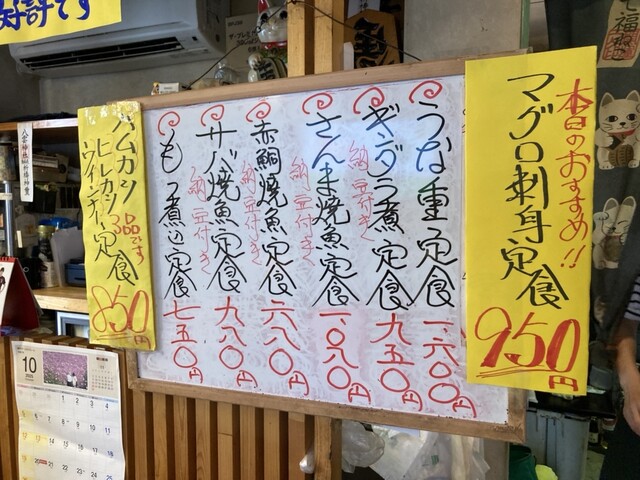 好評です
本日のおすすめ!!
マグロ刺身定食
950円
うな重定食 一、六〇〇円
ギンダラ煮定食 九五〇円
納豆付き
さんま焼魚定食 一、〇八〇円
納豆付き
赤鯛焼魚定食 六八〇円
納豆付き
サバ焼魚定食 九八〇円
納豆付き
もつ煮込定食 七五〇円
ハムカツ
ヒレカツ
ウインナー
3品です
定食
850円
七福
10